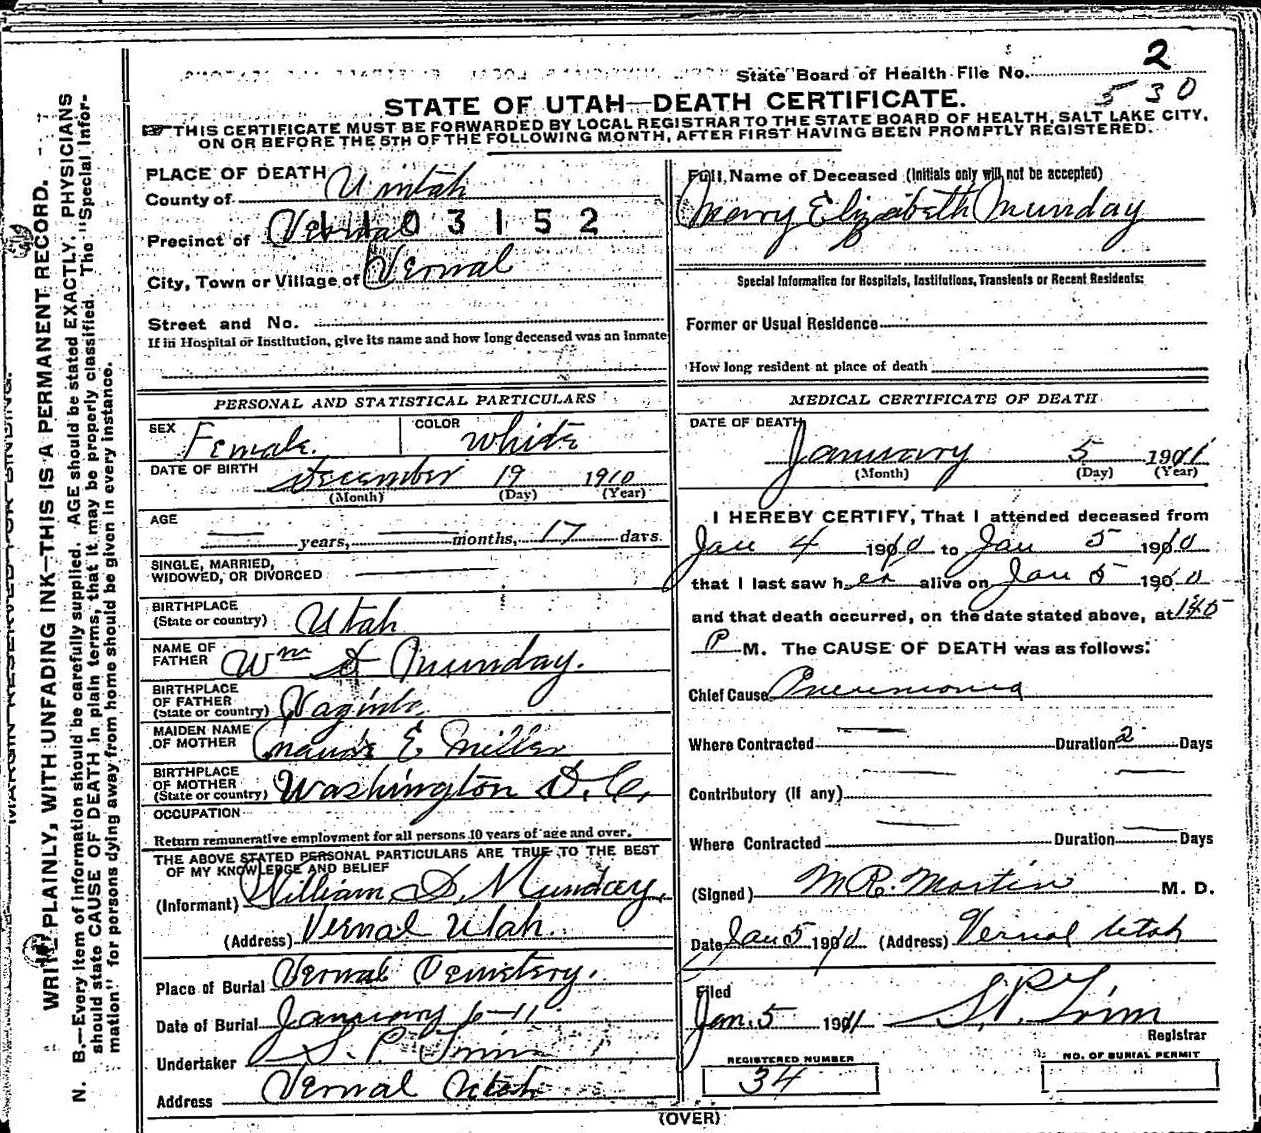 State Board of Health File No. 2
530
STATE OF UTAH—DEATH CERTIFICATE.
☞THIS CERTIFICATE MUST BE FORWARDED BY LOCAL REGISTRAR TO THE STATE BOARD OF HEALTH, SALT LAKE CITY,
ON OR BEFORE THE 5TH OF THE FOLLOWING MONTH, AFTER FIRST HAVING BEEN PROMPTLY REGISTERED.
MARGIN RESERVED FOR BINDING.
WRITE PLAINLY, WITH UNFADING INK—THIS IS A PERMANENT RECORD.
N. B.—Every item of information should be carefully supplied. AGE should be stated EXACTLY. PHYSICIANS
should state CAUSE OF DEATH in plain terms, that it may be properly classified. The "Special Infor-
mation" for persons dying away from home should be given in every instance.
PLACE OF DEATH
County of Uintah
Precinct of Vernal
1103152
City, Town or Village of Vernal
Street and No.
If in Hospital or Institution, give its name and how long deceased was an inmate
Full Name of Deceased (Initials only will not be accepted)
Merry Elizabeth Munday
Special Information for Hospitals, Institutions, Transients or Recent Residents:
Former or Usual Residence
How long resident at place of death
PERSONAL AND STATISTICAL PARTICULARS
SEX Female. COLOR White
DATE OF BIRTH December 19 1910
(Month) (Day) (Year)
AGE
— years, — months, 17 days.
SINGLE, MARRIED,
WIDOWED, OR DIVORCED —
BIRTHPLACE
(State or country) Utah
NAME OF
FATHER Wm D Munday.
BIRTHPLACE
OF FATHER
(State or country) Vaginia
MAIDEN NAME
OF MOTHER Maude E Miller
BIRTHPLACE
OF MOTHER
(State or country) Washington D.C.
OCCUPATION
Return remunerative employment for all persons 10 years of age and over.
THE ABOVE STATED PERSONAL PARTICULARS ARE TRUE TO THE BEST
OF MY KNOWLEDGE AND BELIEF
(Informant) William D. Munday.
(Address) Vernal Utah.
Place of Burial Vernal Cemetery.
Date of Burial January 6-11
Undertaker S. P. Trim
Address Vernal Utah
MEDICAL CERTIFICATE OF DEATH
DATE OF DEATH
January 5 1911
(Month) (Day) (Year)
I HEREBY CERTIFY, That I attended deceased from
Jan 4 1910 to Jan 5 1910
that I last saw her alive on Jan 5 1910
and that death occurred, on the date stated above, at 145
P M. The CAUSE OF DEATH was as follows:
Chief Cause Pneumonia
Where Contracted — Duration 2 Days
Contributory (if any) — —
Where Contracted — Duration — Days
(Signed) M R. Martin M. D.
Date Jan 5 1910 (Address) Vernal Utah
Filed
Jan. 5 1911 S. P. Trim
Registrar
REGISTERED NUMBER
34
NO. OF BURIAL PERMIT
(OVER)